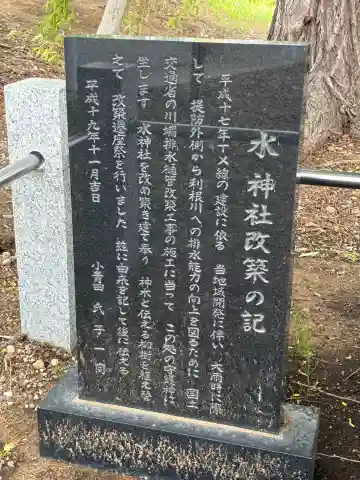 水神社改築の記
平成十七年TX線の建設に依る 当地域開発に伴い 大雨時に際
して 堤防外側から利根川への排水能力の向上を図るために 国土
交通省の川端排水樋管改築工事の施工に当って この処の字藤神に
坐します 水神社を改め築き建て奉り 神木と伝える柳樹を植え替
えて 改築遷座祭を行いました 茲に由来を記して後に伝える
平成十九年十一月吉日
小青田 氏子一同